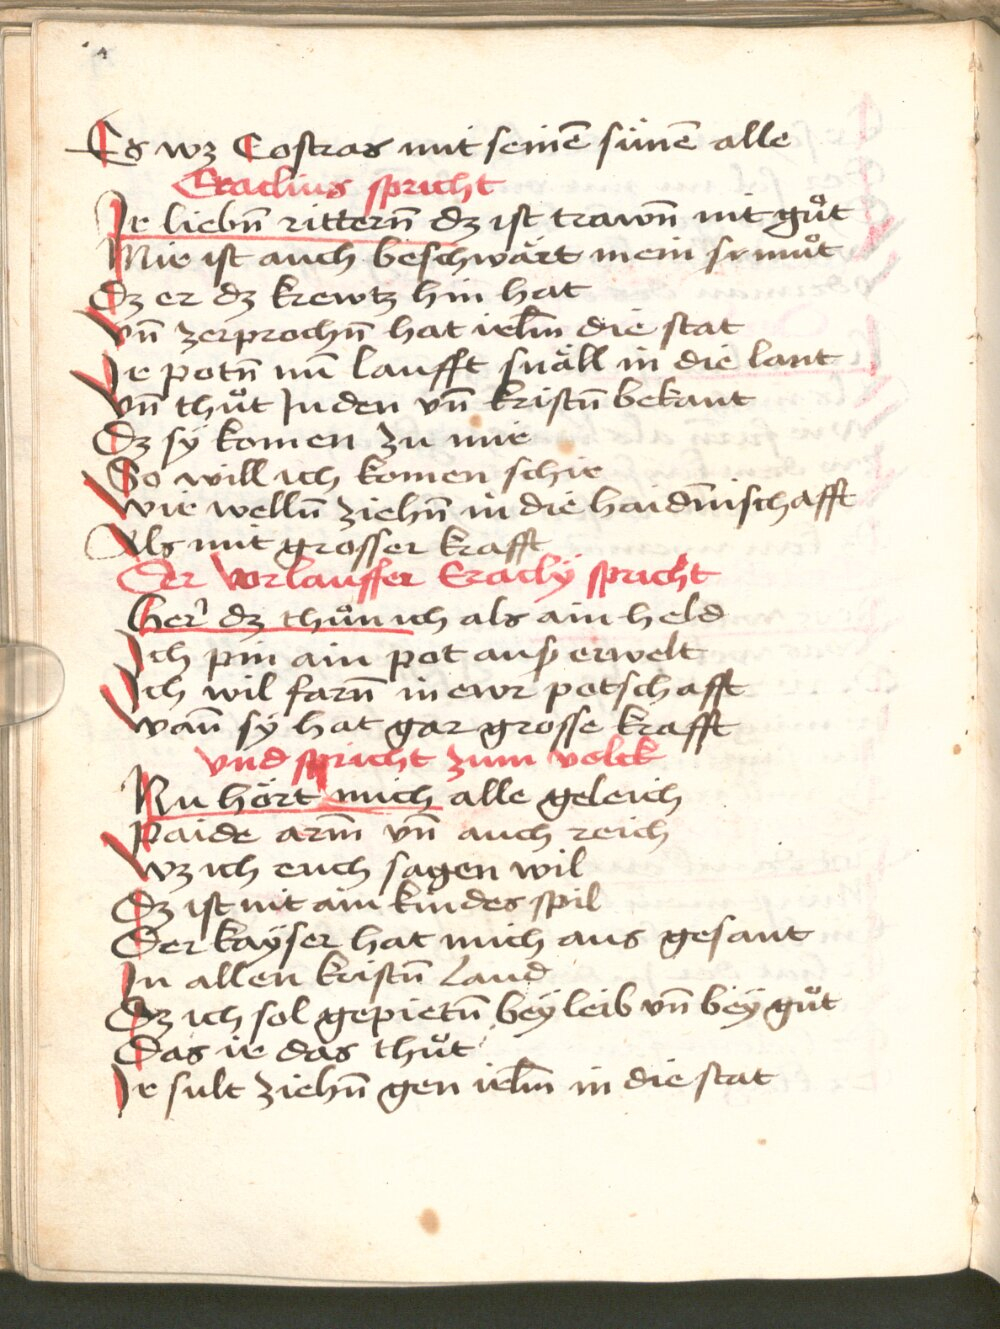 Es wz Costras mit seinē sünē alle
Eraclius spricht
Ir liebn̄ rittern̄ dz ist trawn̄ nit gůt
Mir ist auch beschwärt mein
Dz er dz krewtz hin hat
Vn̄ zerprochn̄ hat ierl̄m die stat
Ir potn̄ nu̅ laufft snäll in die lant
Vn̄ thůt Juden vn̄ kristn̄ bekant
Dz sÿ komen zu mir
So will ich komen schir
Wir welln̄ ziehn̄ in die haidn̄ischafft
Als mit grosser krafft
Der vorlauffer Eraclÿ spricht
Her' dz thůn ich als ain held
Ich pin ain pot ausz erwelt
Ich wil farn̄ in ewr potschafft
Wan̄ sÿ hat gar grosse krafft
Vnd spricht zum volck
Nu hört mich alle geleich
Paide arm̄ vn̄ auch reich
Wz ich euch sagen wil
Dz ist nit ain kindes spil
Der kaÿser hat mich aus gesant
In allen kristn̄ Land
Dz ich sol gepietn̄ beÿ leib vn̄ beÿ gůt
Das ir das thůt
Ir sult ziehn̄ gen ierl̄m in die stat